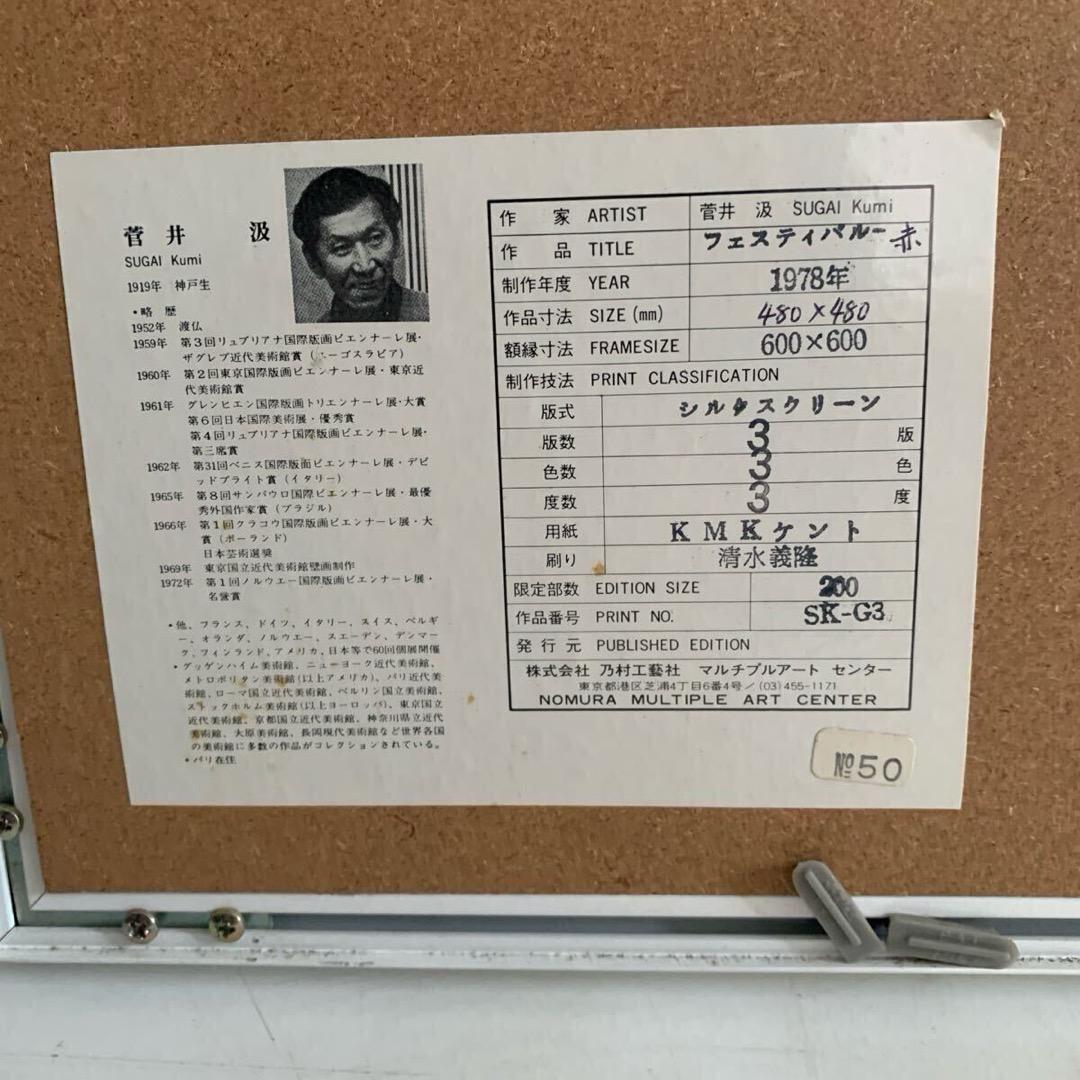 菅井 汲
SUGAI Kumi
1919年 神戸生
・略 歴
1952年 渡仏
1959年 第3回リュブリアナ国際版画ビエンナーレ展・
ザグレブ近代美術館賞(ユーゴスラビア)
1960年 第2回東京国際版画ビエンナーレ展・東京近
代美術館賞
1961年 グレンヒエン国際版画トリエンナーレ展・大賞
第6回日本国際美術展・優秀賞
第4回リュブリアナ国際版画ビエンナーレ展・
第三席賞
1962年 第31回ベニス国際版画ビエンナーレ展・デビ
ッドブライト賞(イタリー)
1965年 第8回サンパウロ国際ビエンナーレ展・最優
秀外国作家賞(ブラジル)
1966年 第1回クラコウ国際版画ビエンナーレ展・大
賞(ポーランド)
日本芸術選奨
1969年 東京国立近代美術館壁画制作
1972年 第1回ノルウエー国際版画ビエンナーレ展・
名誉賞
・他、フランス、ドイツ、イタリー、スイス、ベルギ
ー、オランダ、ノルウエー、スエーデン、デンマー
ク、フィンランド、アメリカ、日本等で60回個展開催
・グッゲンハイム美術館、ニューヨーク近代美術館、
メトロポリタン美術館(以上アメリカ)、パリ近代美
術館、ローマ国立近代美術館、ベルリン国立美術館、
ストックホルム美術館(以上ヨーロッパ)、東京国立
近代美術館、京都国立近代美術館、神奈川県立近代
美術館、大原美術館、長岡現代美術館など世界各国
の美術館に多数の作品がコレクションされている。
・パリ在住
作 家 ARTIST 菅井 汲 SUGAI Kumi
作 品 TITLE フェスティバルー赤
制作年度 YEAR 1978年
作品寸法 SIZE (mm) 480×480
額縁寸法 FRAMESIZE 600×600
制作技法 PRINT CLASSIFICATION
版式 シルクスクリーン
版数 3 版
色数 3 色
度数 3 度
用紙 KMKケント
刷り 清水義隆
限定部数 EDITION SIZE 200
作品番号 PRINT NO. SK-G3
発行元 PUBLISHED EDITION
株式会社 乃村工藝社 マルチプルアート センター
東京都港区芝浦4丁目6番4号/(03)455-1171
NOMURA MULTIPLE ART CENTER
№50